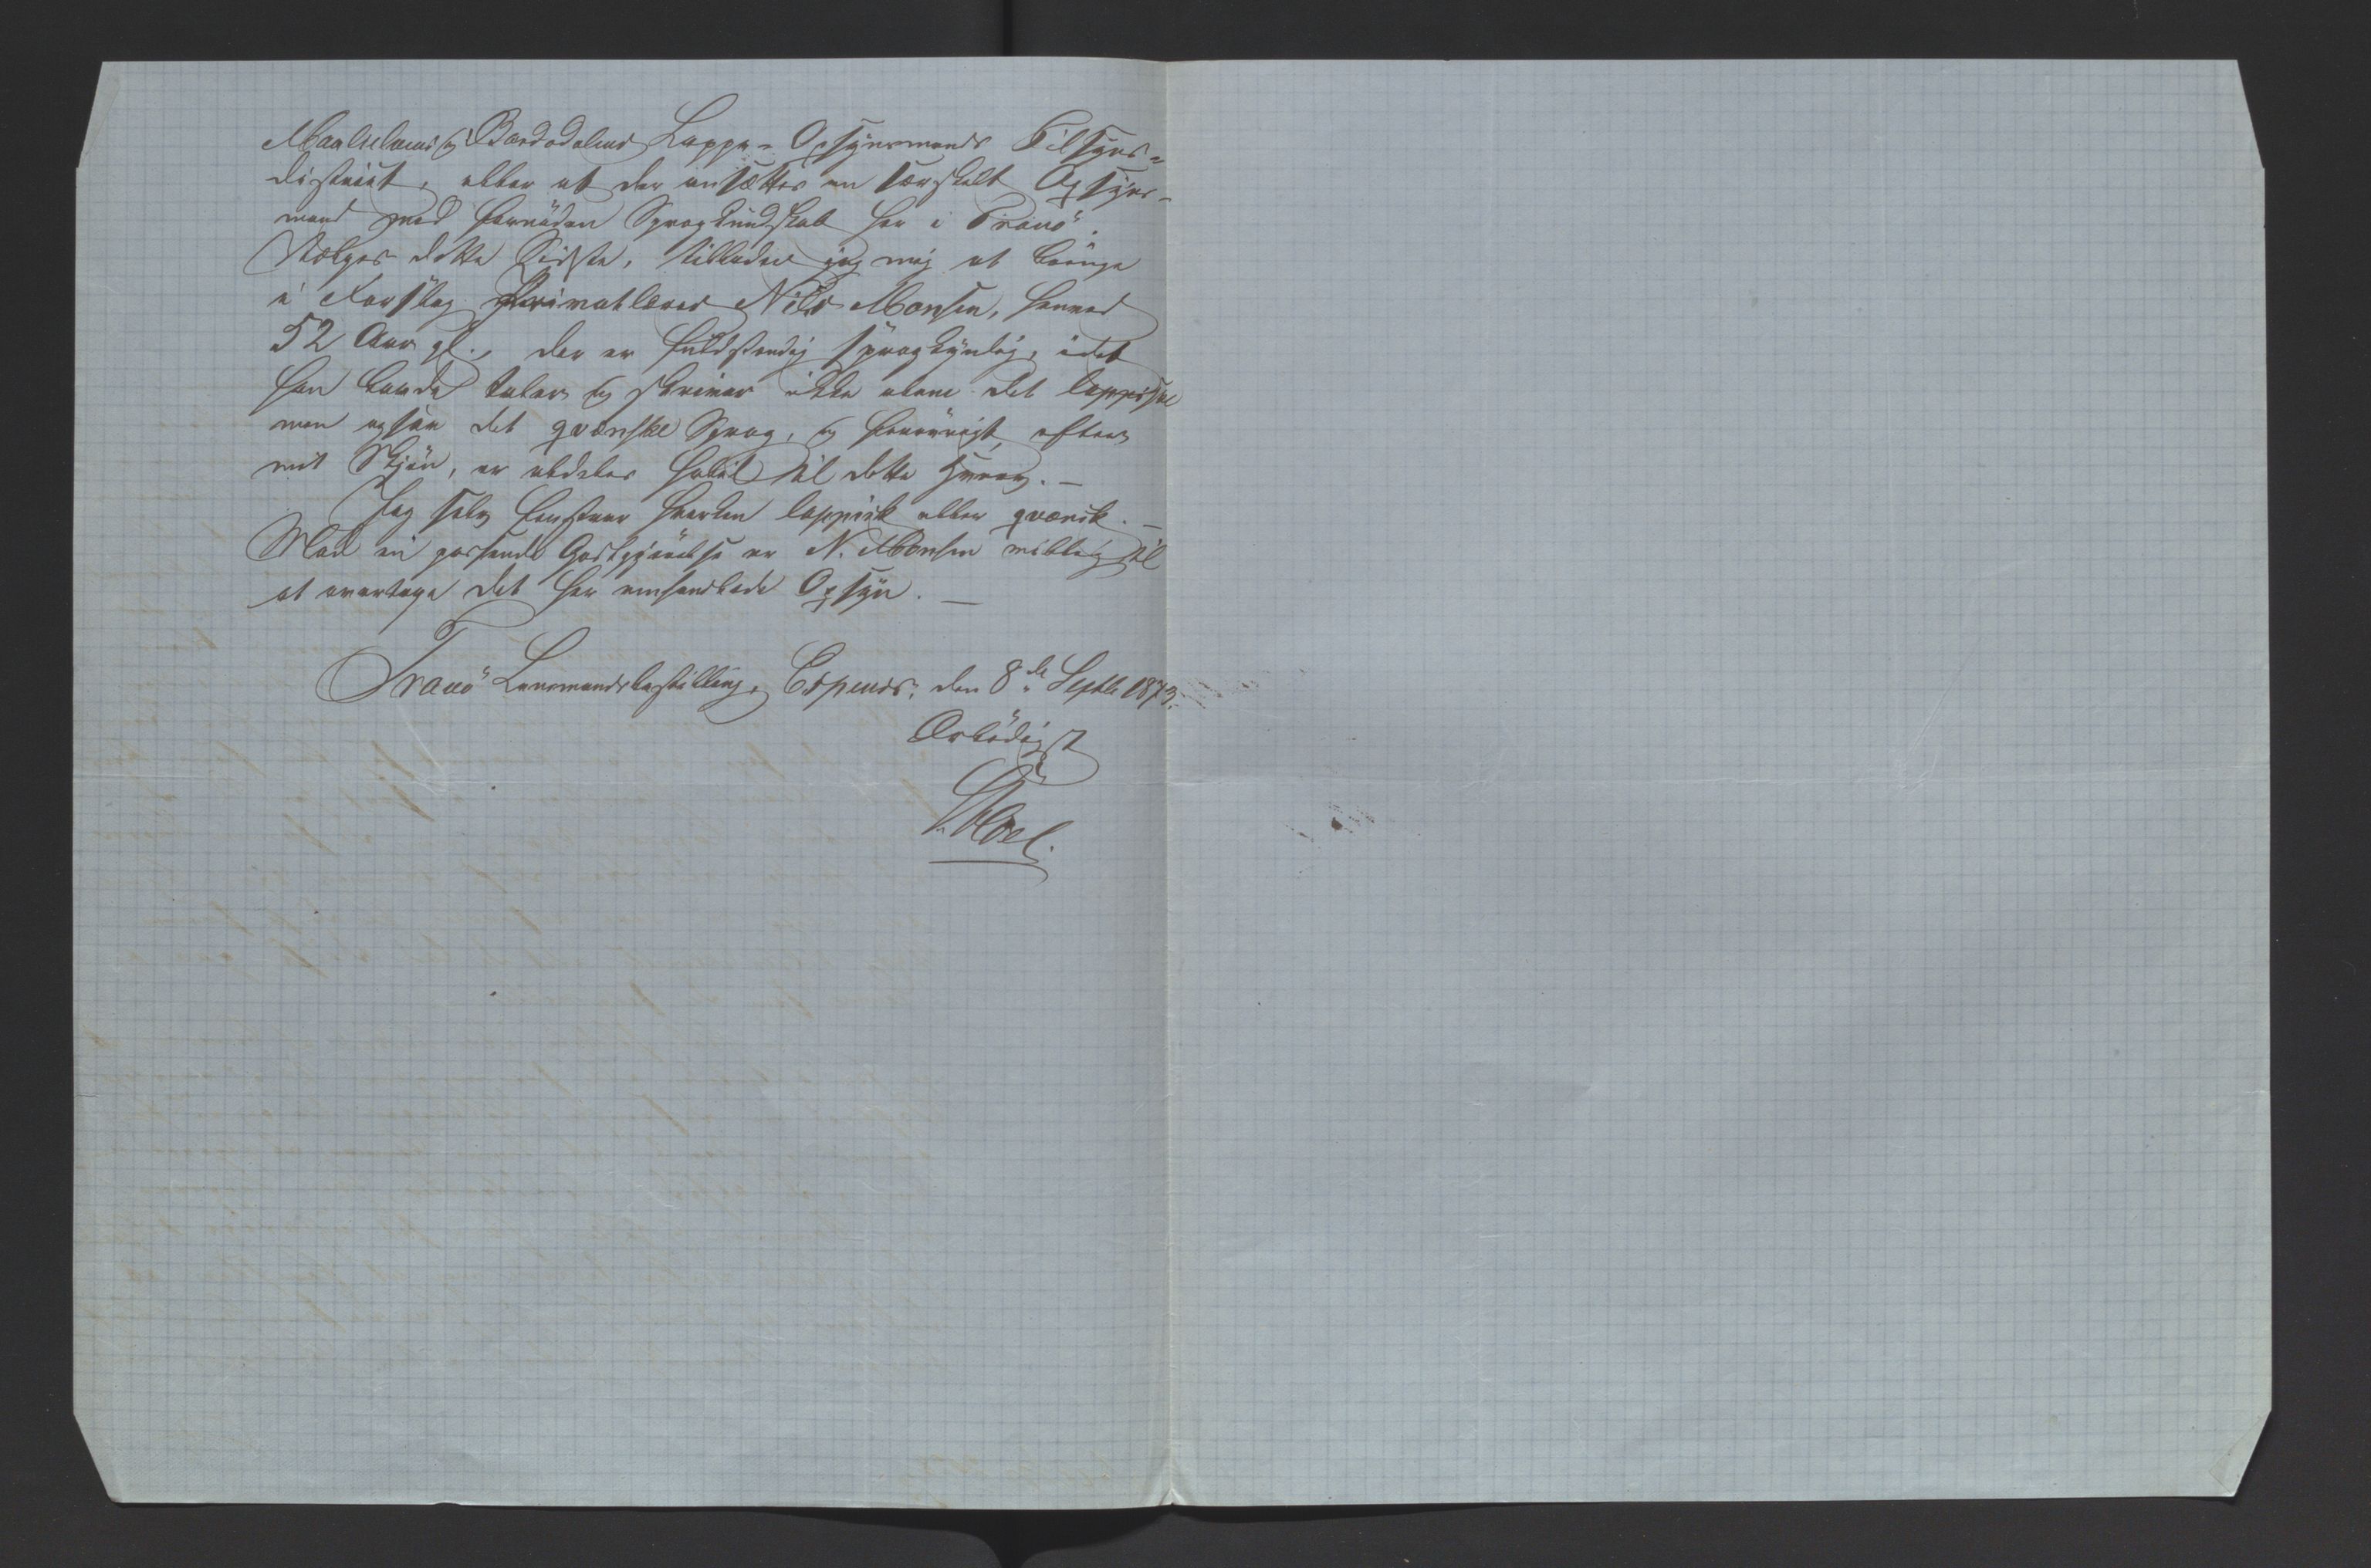 Maalselvens og Bardodalens Lappe-Opsynsmands Tilsyns-
district, eller at der ansættes en særskilt Opsyns-
mand med fornöden Sprogkundskab her i Tranö.
Vælges dette Sidste, tillader jeg mig at bringe
i Forslag Privatlærer Nils Monsen, henved
52 Aar gl., der er fuldstændig sprogkyndig, idet
han baade taler og skriver ikke alene det lappiske
men ogsaa det qvænske Sprog, og forövrigt, efter
mit Skjön, er aldeles habil til dette Hverv. —
Jeg selv forstaar hverken lappisk eller qvænsk. —
Mod en passende Godtgjörelse er N. Monsen villig til
at overtage det her omhandlede Opsyn. —
Tranö Lensmandsbestilling, Espenes, den 8de Septbr 1873.
Ærbödigst